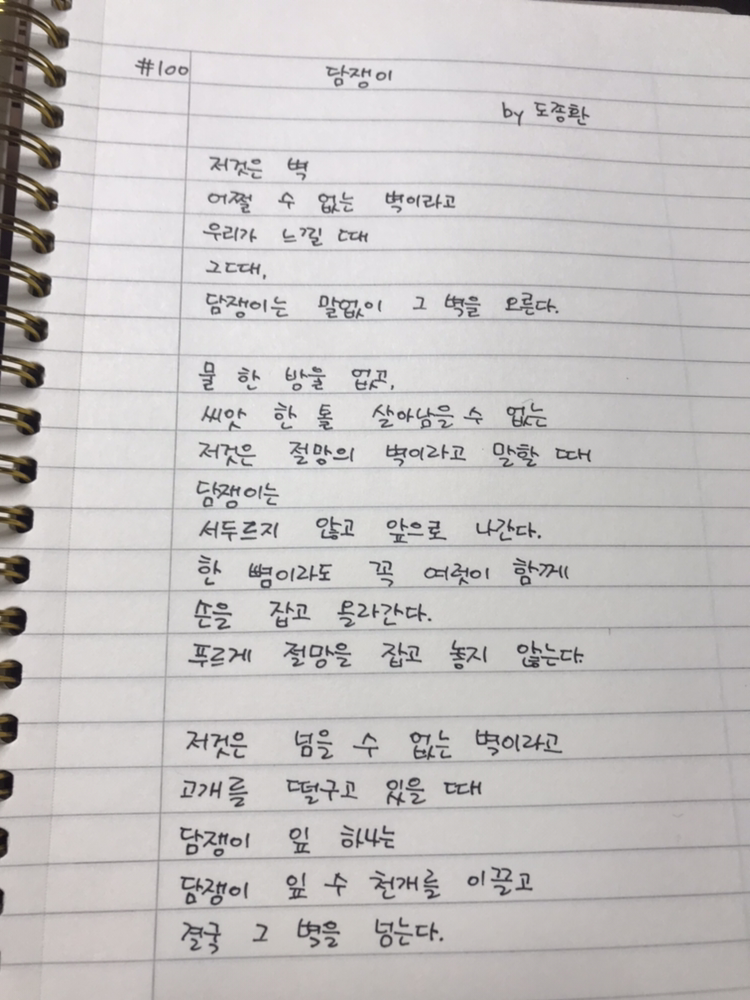 #100 담쟁이
by 도종환
저것은 벽
어쩔 수 없는 벽이라고
우리가 느낄 때
그때,
담쟁이는 말없이 그 벽을 오른다.
물 한 방울 없고,
씨앗 한 톨 살아남을 수 없는
저것은 절망의 벽이라고 말할 때
담쟁이는
서두르지 않고 앞으로 나간다.
한 뼘이라도 꼭 여럿이 함께
손을 잡고 올라간다.
푸르게 절망을 잡고 놓지 않는다.
저것은 넘을 수 없는 벽이라고
고개를 떨구고 있을 때
담쟁이 잎 하나는
담쟁이 잎 수 천개를 이끌고
결국 그 벽을 넘는다.